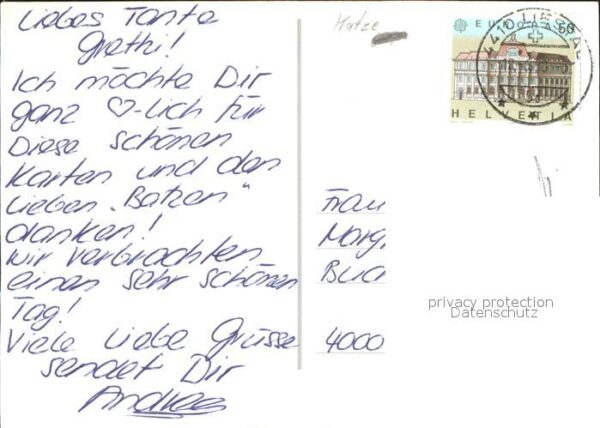 Liebes Tante
Grethi!
Ich möchte Dir
ganz ♡-lich für
Diese schönen
Karten und den
lieben „Batzen"
danken!
Wir verbrachten
einen sehr schönen
Tag!
Viele Liebe Grüsse
sendet Dir
Andrea
Hatze
EUROPA 50
4410 LIESTAL
HELVETIA
Frau
Marg
Buc
4000
privacy protection
Datenschutz